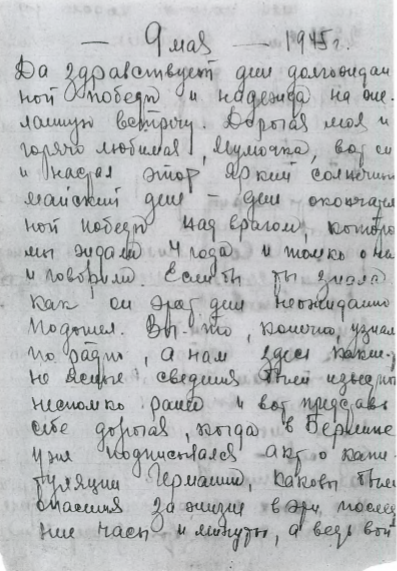 — 9 мая — 1945 г.
Да здравствует день долгождан
ной победы и надежда на ско
лашную встречу. Дорогая моя и
горячо любимая, Мумочка, вот он
и настал этот яркий солнечный
майский день – день окончател
ной победы над врагом, которо
мы ждали 4 года и только о нем
и говорили. Если бы ты знала
как он этот день неожиданно
подошел. Вы-то, конечно, узнали
по радио, а нам здесь какие-
не ясные сведения были известны
несколько ранее и вот представь
себе дорогая, когда в Берлине
уже подписывался акт о капи
туляции Германии, каковы были
опасения за жизнь в эти послед
ние часы и минуты, а ведь вой